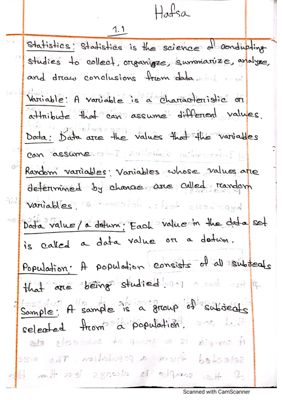 Hafsa
1.1
Statistics: Statistics is the science of conducting
studies to collect, organize, summarize, analyze,
and draw conclusions from data.
Variable: A variable is a characteristic or
attribute that can assume different values.
Data: Data are the values that the variables
can assume.
Random variables: Variables whose values are
determined by chance are called random
variables.
Data value / a datum: Each value in the data set
is called a data value or a datum.
Population: A population consists of all subjects
that are being studied.
Sample: A sample is a group of subjects
selected from a population.
Scanned with CamScanner